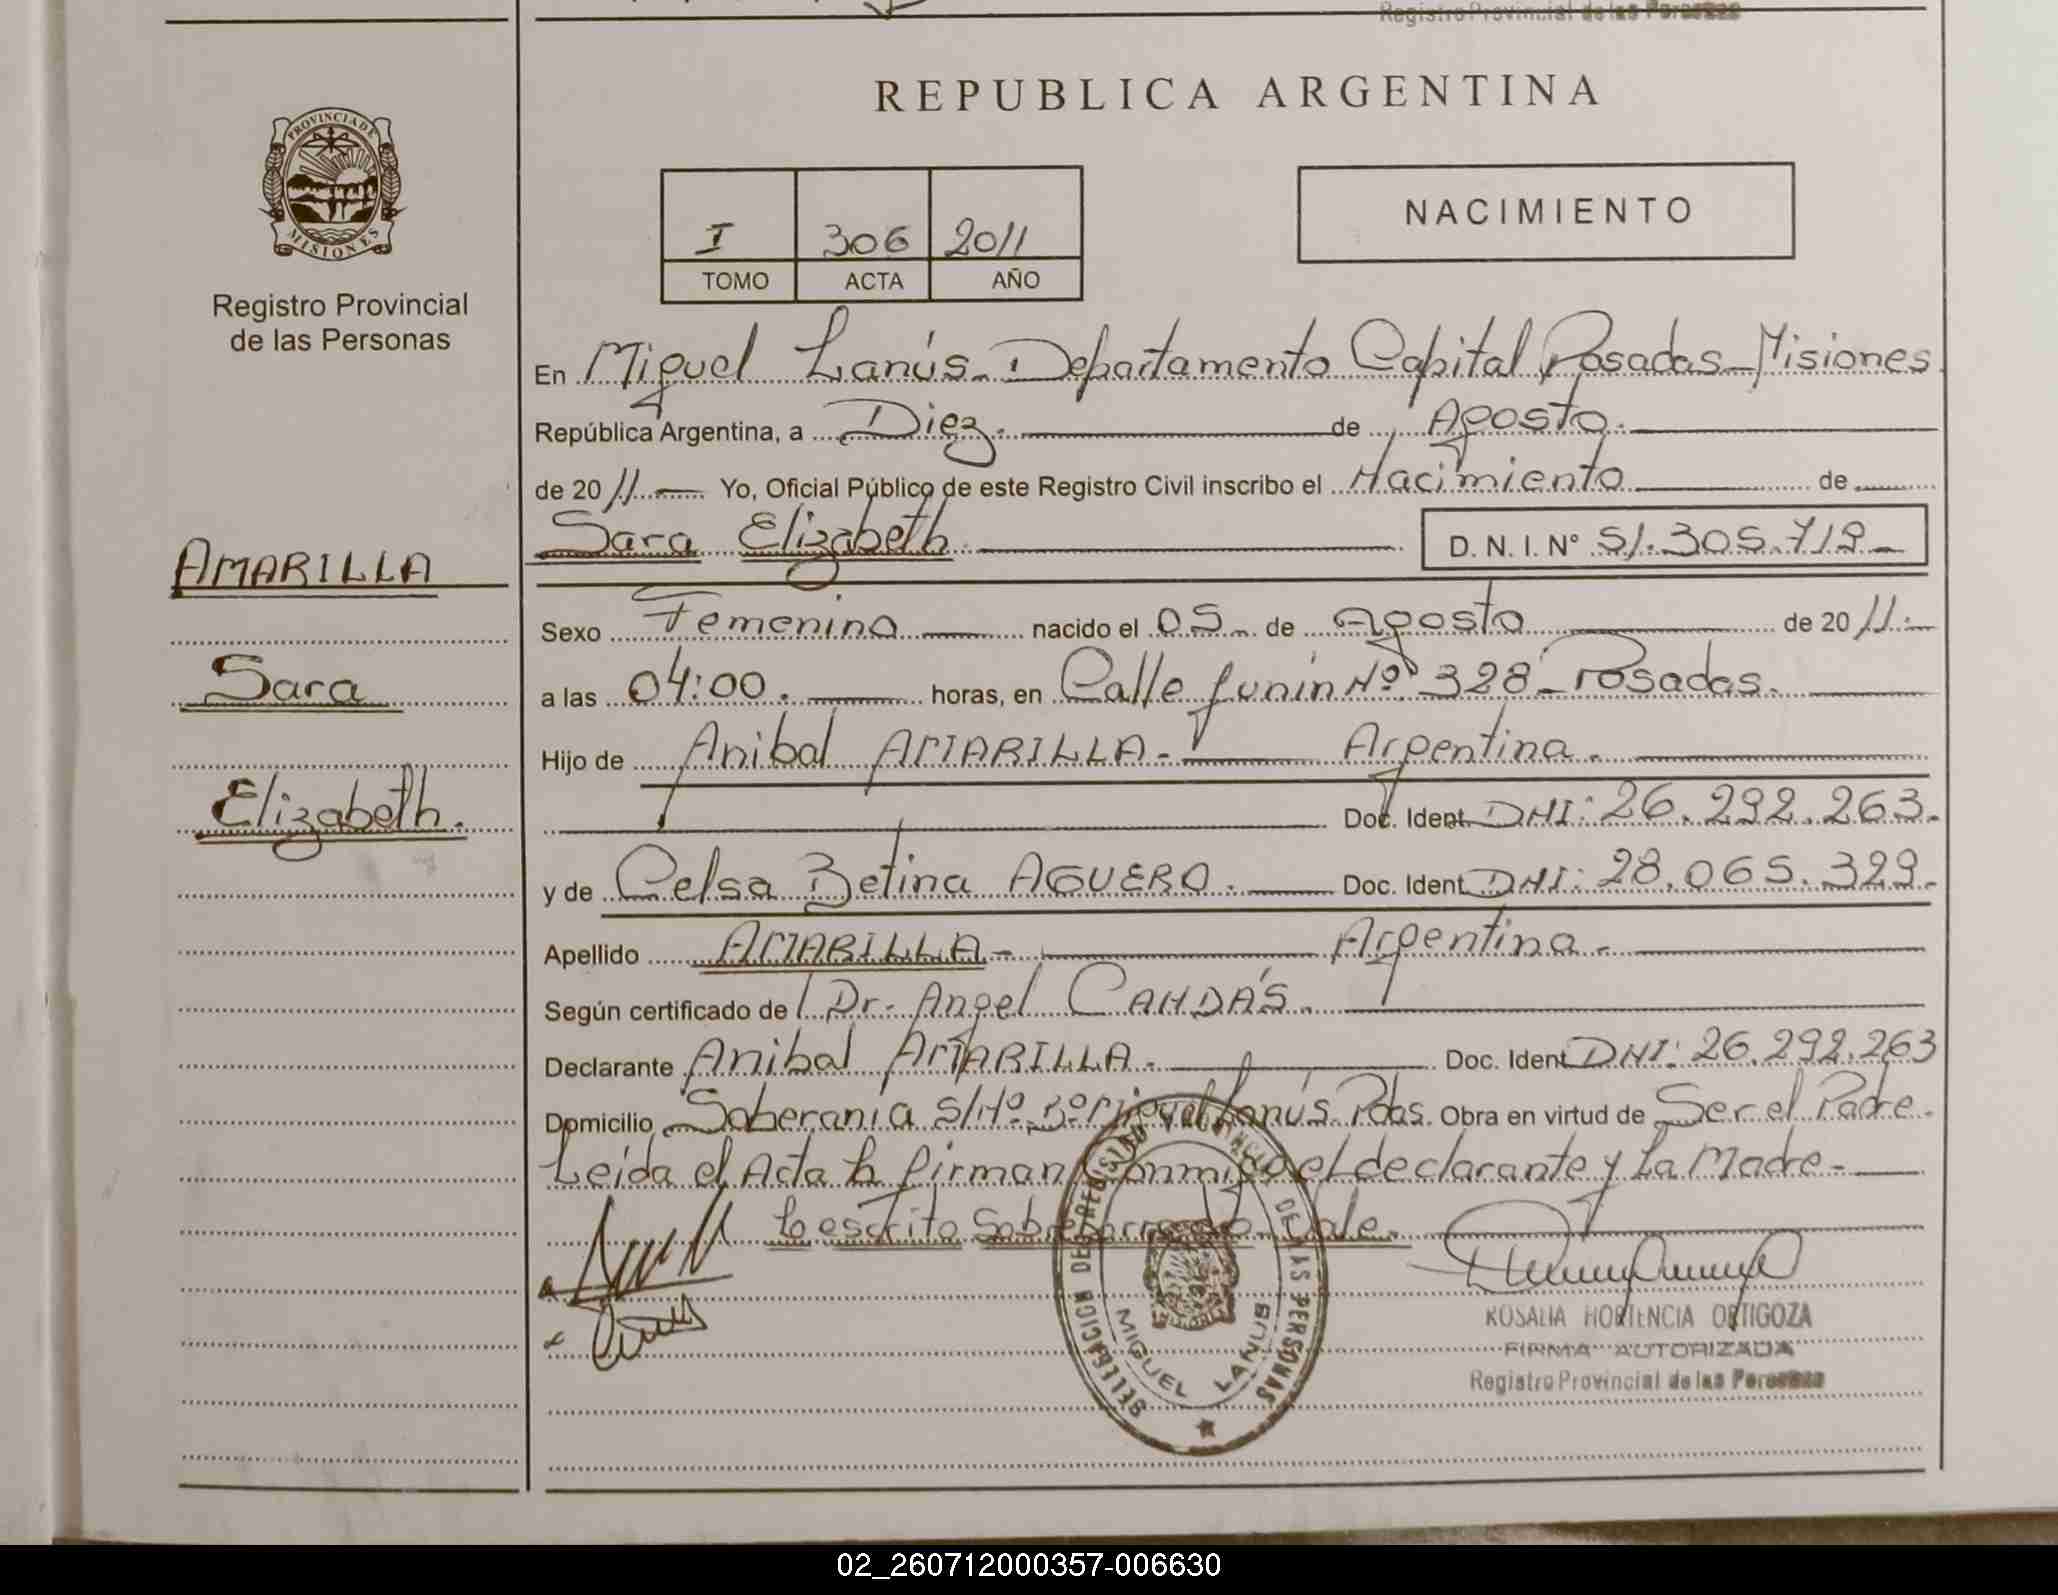 Registro Provincial de las Personas
REPUBLICA ARGENTINA
PROVINCIA DE
MISIONES
Registro Provincial
de las Personas
I 306 2011
TOMO ACTA AÑO
NACIMIENTO
En Miguel Lanús - Departamento Capital Posadas - Misiones
República Argentina, a Diez. de Agosto.
de 20 11 Yo, Oficial Público de este Registro Civil inscribo el Nacimiento de
Sara Elizabeth. D. N. I. N° 51.305.712
AMARILLA
Sara
Elizabeth.
Sexo Femenino nacido el 05 de Agosto de 20 11.
a las 04:00. horas, en Calle Junín Nº 328 - Posadas.
Hijo de Anibal AMARILLA - Argentina.
Doc. Ident. DNI: 26.292.263.
y de Celsa Betina AGUERO. Doc. Ident. DNI: 28.065.329.
Apellido AMARILLA - Argentina.
Según certificado de Dr. Angel CANDÁS.
Declarante Anibal AMARILLA. Doc. Ident. DNI: 26.292.263
Domicilio Soberanía S/Nº Bº Miguel Lanús. Pdas. Obra en virtud de Ser el Padre.
Leída el Acta la firman Conmigo el declarante y La Madre -
Lo escrito Sobreborrado Vale.
DELEGACION DEL REGISTRO PROVINCIAL DE LAS PERSONAS
MIGUEL LANUS
ROSALIA HORTENCIA ORTIGOZA
FIRMA AUTORIZADA
Registro Provincial de las Personas
02_260712000357-006630